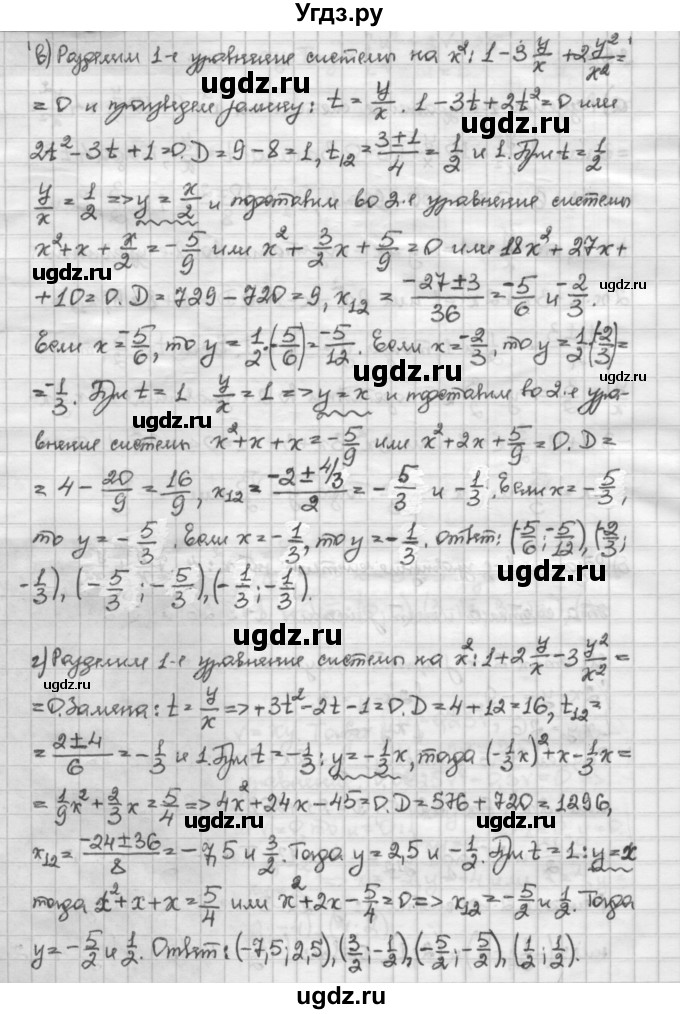 Угдз.ру
в) Разделим 1-е уравнение системы на x²: 1 - 3 y/x + 2 y²/x² =
ugdz.ru ugdz.ru
= 0 и произведем замену: t = y/x. 1 - 3t + 2t² = 0 или
2t² - 3t + 1 = 0. D = 9 - 8 = 1, t₁₂ = (3±1)/4 = 1/2 и 1. При t = 1/2
ugdz.ru
y/x = 1/2 => y = x/2 и подставим во 2-е уравнение системы
x² + x + x/2 = -5/9 или x² + 3/2 x + 5/9 = 0 или 18x² + 27x +
ugdz.ru
+ 10 = 0. D = 729 - 720 = 9, x₁₂ = (-27±3)/36 = -5/6 и -2/3.
ugdz.ru ugdz.ru
Если x = -5/6, то y = 1/2·(-5/6) = -5/12. Если x = -2/3, то y = 1/2(-2/3) =
ugdz.ru
= -1/3. При t = 1 y/x = 1 => y = x и подставим во 2-е ура-
ugdz.ru
внение системы x² + x + x = -5/9 или x² + 2x + 5/9 = 0. D =
= 4 - 20/9 = 16/9, x₁₂ = (-2 ± 4/3)/2 = -5/3 и -1/3. Если x = -5/3,
ugdz.ru ugdz.ru
то y = -5/3. Если x = -1/3, то y = -1/3. Ответ: (-5/6; -5/12), (-2/3;
-1/3), (-5/3; -5/3), (-1/3; -1/3).
ugdz.ru
г) Разделим 1-е уравнение системы на x²: 1 + 2 y/x - 3 y²/x² =
ugdz.ru
= 0. Замена: t = y/x => +3t² - 2t - 1 = 0. D = 4 + 12 = 16, t₁₂ =
ugdz.ru ugdz.ru
= (2±4)/6 = -1/3 и 1. При t = -1/3: y = -1/3 x, тогда (-1/3 x)² + x - 1/3 x =
= 1/9 x² + 2/3 x = 5/4 => 4x² + 24x - 45 = 0. D = 576 + 720 = 1296,
ugdz.ru ugdz.ru
x₁₂ = (-24±36)/8 = -7,5 и 3/2. Тогда y = 2,5 и -1/2. При t = 1: y = x
тогда x² + x + x = 5/4 или x² + 2x - 5/4 = 0 => x₁₂ = -5/2 и 1/2. Тогда
ugdz.ru
y = -5/2 и 1/2. Ответ: (-7,5; 2,5), (3/2; -1/2), (-5/2; -5/2), (1/2; 1/2).
ugdz.ru